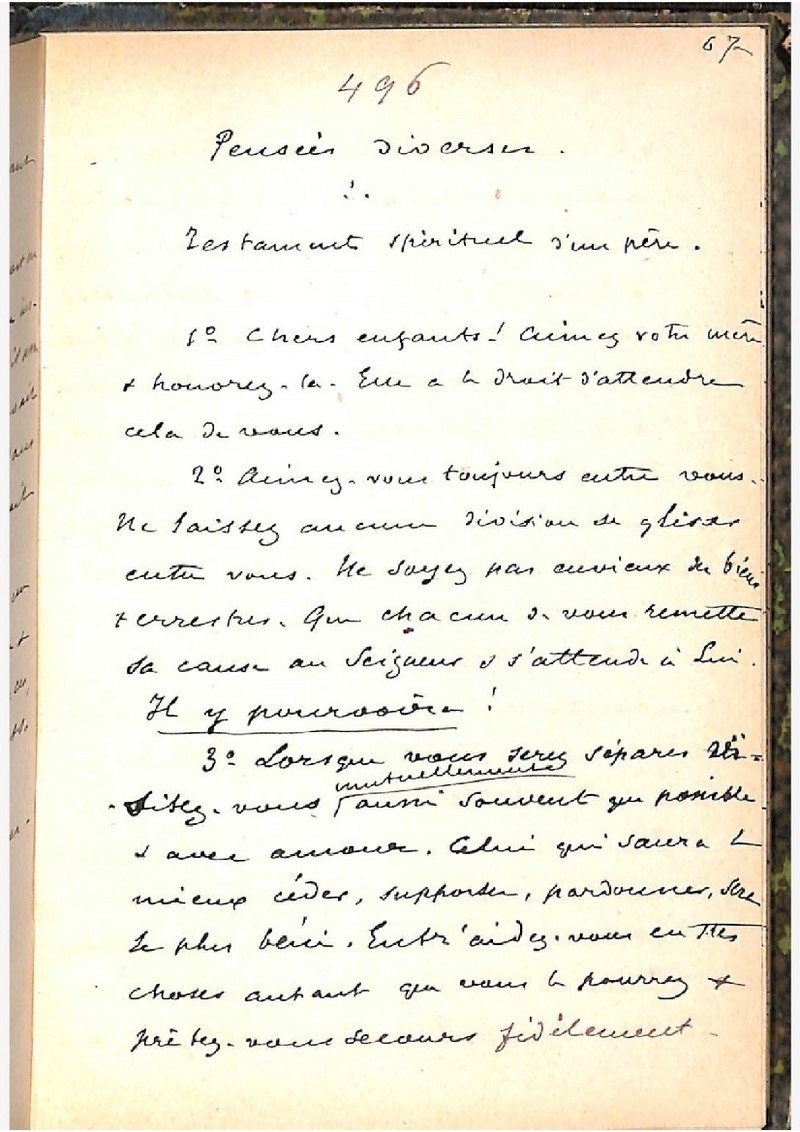 67
496
Pensées diverses.
Testament spirituel d'un père.
1º Chers enfants! Aimez votre mère
& honorez-la. Elle a le droit d'attendre
cela de vous.
2º Aimez-vous toujours entre vous.
Ne laissez aucune division se glisser
entre vous. Ne soyez pas envieux des biens
terrestres. Que chacun de vous remette
sa cause au Seigneur & s'attende à Lui.
Il y pourvoira !
3º Lorsque vous serez séparés vi=
mutuellement
sitez-vous aussi souvent que possible
& avec amour. Celui qui saura le
mieux céder, supporter, pardonner, sera
le plus béni. Entr'aidez-vous en ttes
choses autant que vous le pourrez &
prêtez-vous secours fidèlement.